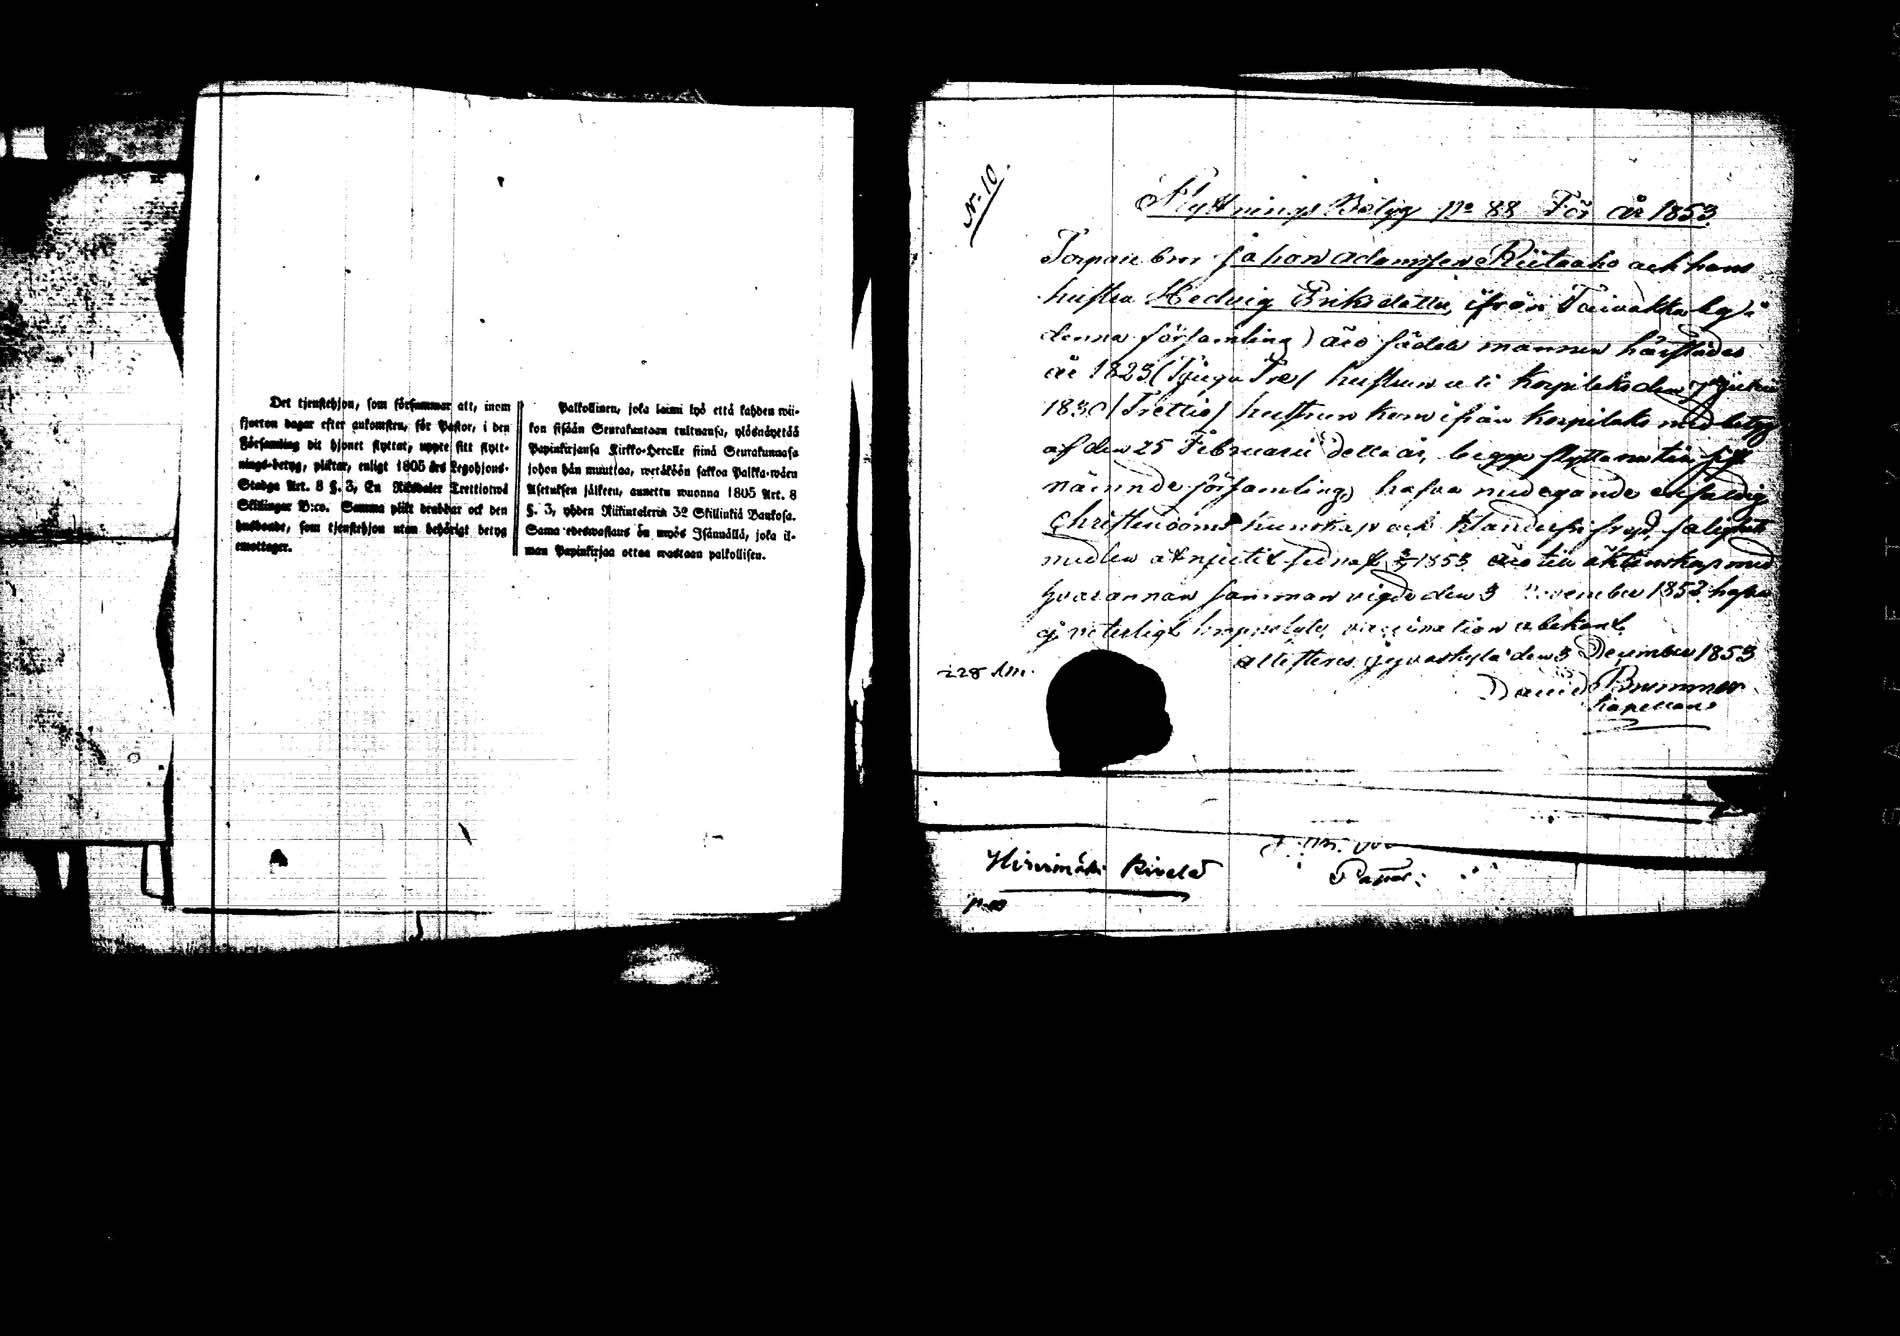 Det tjenstehjon, som försummar att, inom
fjorton dagar efter ankomsten, för Pastor, i den
Församling dit hjonet flyttat, uppte sitt flytt-
nings-betyg, pliktar, enligt 1805 års Legohjons-
Stadga Art. 8 §. 3, En Riksdaler Trettiotwå
Skillingar B:co. Samma plikt drabbar ock den
husbonde, som tjenstehjon utan behörigt betyg
emottager.
Palkollinen, joka laimi lyö että kahden wii-
kon sisään Seurakuntaan tultuansa, ylösnäyttää
Papinkirjansa Kirkko-Herralle siinä Seurakunnasa
johon hän muuttaa, wetäköön sakkoa Palka-wäen
Asetuksen jälkeen, annettu wuonna 1805 Art. 8
§. 3, yhden Riikintalerin 32 Skillinkiä Bankosa.
Sama edeswastaus on myös Isännällä, joka il-
man Papinkirjaa ottaa wastaan palkollisen.
N:10.
Flyttnings Betyg No 88 För år 1853.
Torpare bror Johan Adamsson Riitaaho och hans
hustru Hedvig Eriksdotter, ifrån Taivakka by i
denna församling) äro födde mannen härstädes
år 1823 (Tjugu Tre) hustrun uti Korpilaks den 7 Julii
1830 (Trettio) hustrun kom ifrån Korpilaks med betyg
af den 25 Februarii detta år, begge flytta nu till
nämnde församling, hafva enfaldig
Christendoms kunskap och klanderfri frejd, salighets
medlen åtnjutit sednast 1853 äro till äktenskap med
hvarannan samman vigde den 3 November 1853 hafva
ej veterligt vaccination obekant.
attesteras Jyväskylä den 3 December 1853
David Brummer
Kapellan
228 Am.
Hirvimäki Kivelä